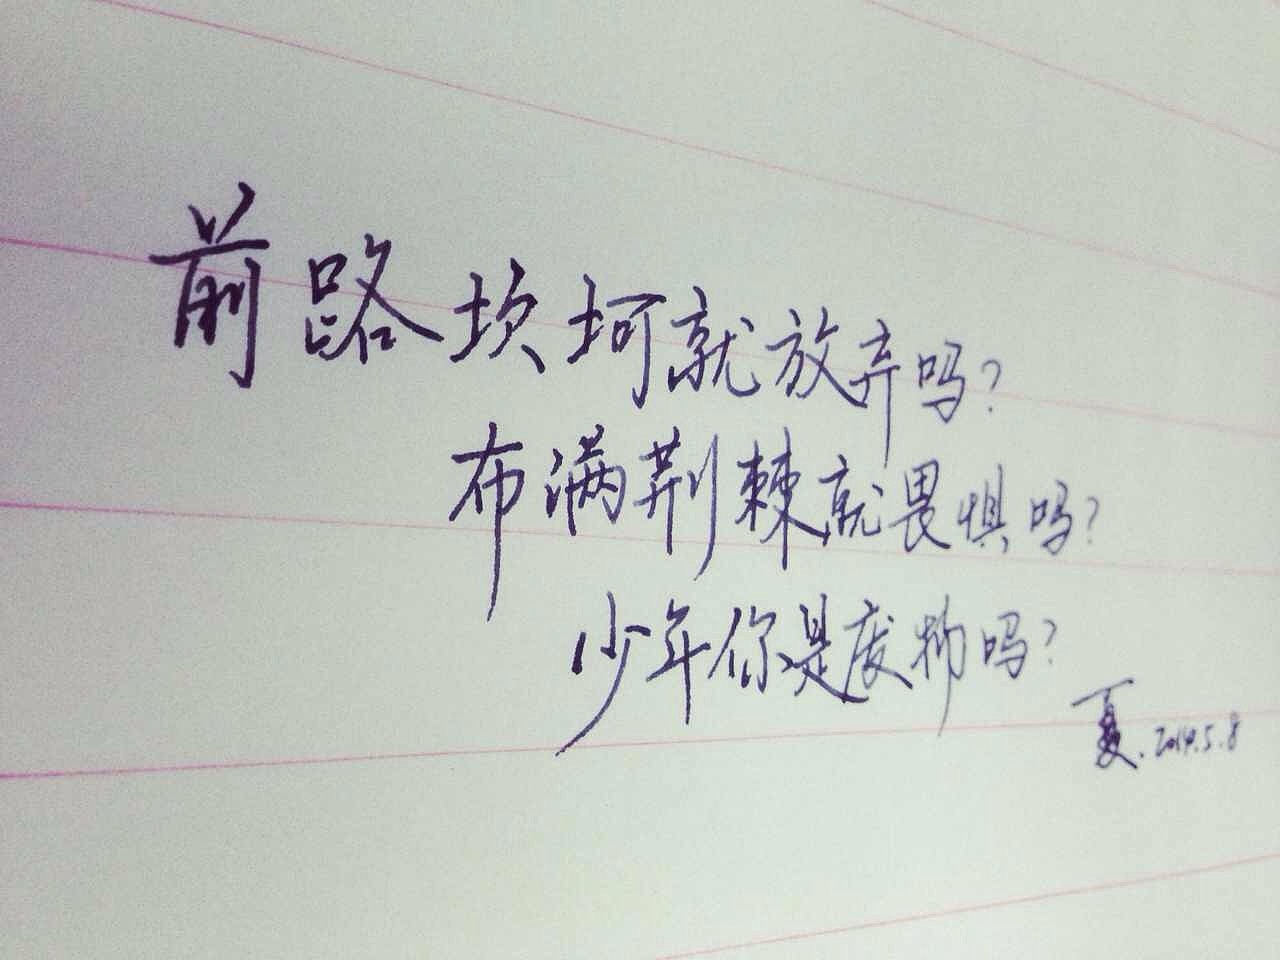 前路坎坷就放弃吗?
布满荆棘就畏惧吗?
少年你是废物吗?
夏.2014.5.8